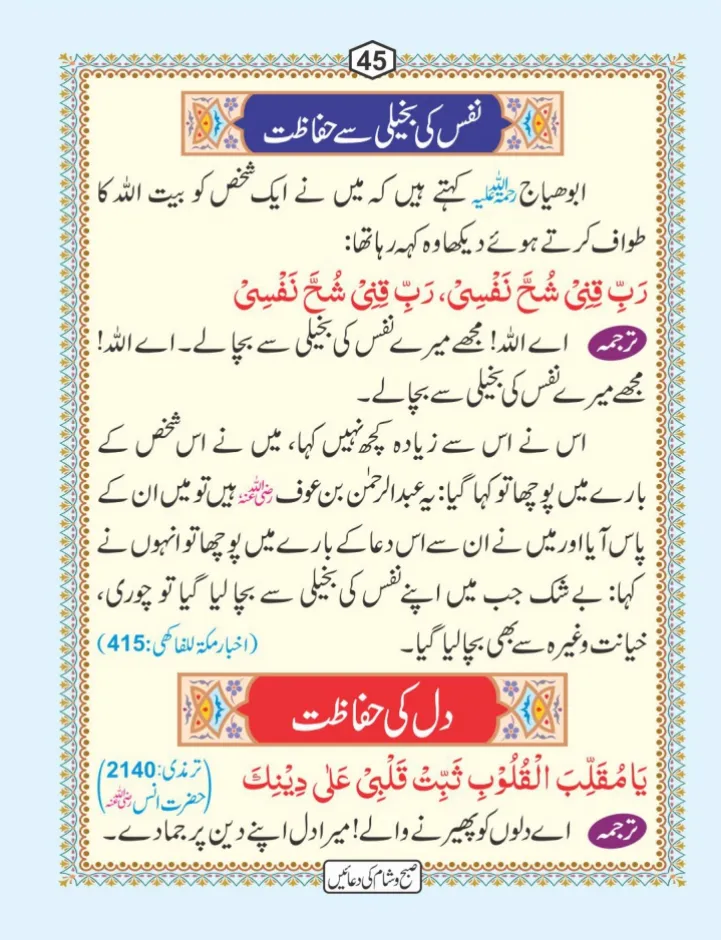 45
نفس کی بخیلی سے حفاظت
ابوھیاج رحمۃ اللہ علیہ کہتے ہیں کہ میں نے ایک شخص کو بیت اللہ کا
طواف کرتے ہوئے دیکھا وہ کہہ رہا تھا:
رَبِّ قِنِیْ شُحَّ نَفْسِیْ، رَبِّ قِنِیْ شُحَّ نَفْسِیْ
ترجمہ اے اللہ! مجھے میرے نفس کی بخیلی سے بچا لے۔ اے اللہ!
مجھے میرے نفس کی بخیلی سے بچا لے۔
اس نے اس سے زیادہ کچھ نہیں کہا، میں نے اس شخص کے
بارے میں پوچھا تو کہا گیا: یہ عبدالرحمٰن بن عوف رضی اللہ عنہ ہیں تو میں ان کے
پاس آیا اور میں نے ان سے اس دعا کے بارے میں پوچھا تو انہوں نے
کہا: بے شک جب میں اپنے نفس کی بخیلی سے بچا لیا گیا تو چوری،
خیانت وغیرہ سے بھی بچا لیا گیا۔ (اخبار مکۃ للفاکھی: 415)
دل کی حفاظت
یَا مُقَلِّبَ الْقُلُوْبِ ثَبِّتْ قَلْبِیْ عَلٰی دِیْنِكَ (ترمذی: 2140
حضرت انس رضی اللہ عنہ)
ترجمہ اے دلوں کو پھیرنے والے! میرا دل اپنے دین پر جما دے۔
صبح و شام کی دعائیں